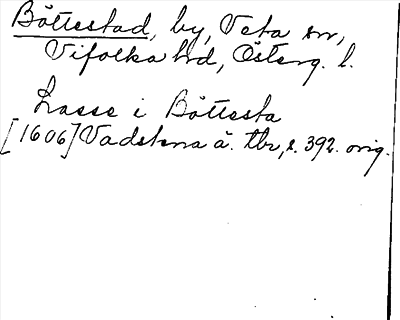 Böttestad, by, Veta sn,
Vifolka hd, Österg. l.
Lasse i Böttesta
[1606] Vadstena ä. tbr, s. 392. orig.